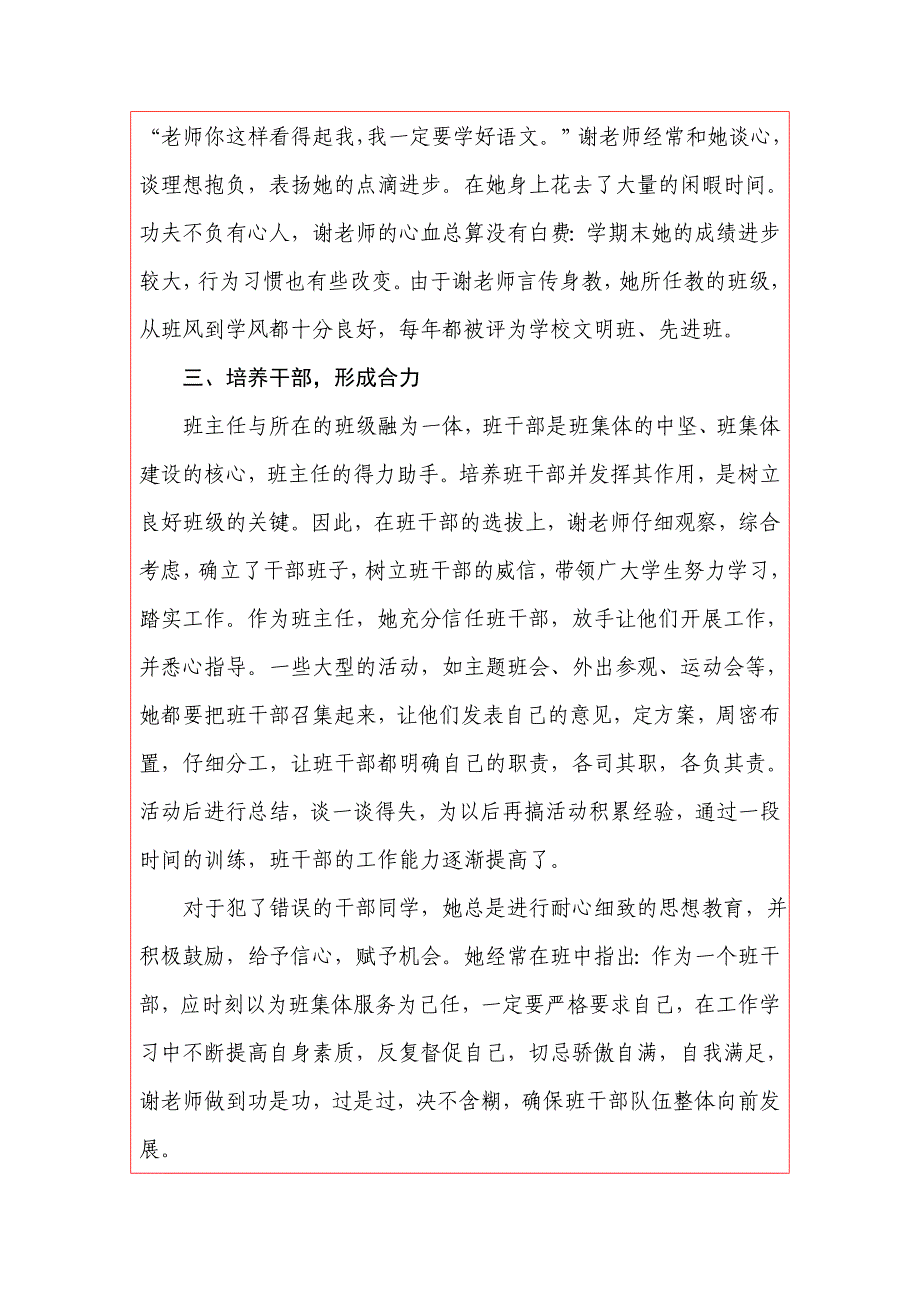 “老师你这样看得起我，我一定要学好语文。”谢老师经常和她谈心，
谈理想抱负，表扬她的点滴进步。在她身上花去了大量的闲暇时间。
功夫不负有心人，谢老师的心血总算没有白费：学期末她的成绩进步
较大，行为习惯也有些改变。由于谢老师言传身教，她所任教的班级，
从班风到学风都十分良好，每年都被评为学校文明班、先进班。
三、培养干部，形成合力
班主任与所在的班级融为一体，班干部是班集体的中坚、班集体
建设的核心，班主任的得力助手。培养班干部并发挥其作用，是树立
良好班级的关键。因此，在班干部的选拔上，谢老师仔细观察，综合
考虑，确立了干部班子，树立班干部的威信，带领广大学生努力学习，
踏实工作。作为班主任，她充分信任班干部，放手让他们开展工作，
并悉心指导。一些大型的活动，如主题班会、外出参观、运动会等，
她都要把班干部召集起来，让他们发表自己的意见，定方案，周密布
置，仔细分工，让班干部都明确自己的职责，各司其职，各负其责。
活动后进行总结，谈一谈得失，为以后再搞活动积累经验，通过一段
时间的训练，班干部的工作能力逐渐提高了。
对于犯了错误的干部同学，她总是进行耐心细致的思想教育，并
积极鼓励，给予信心，赋予机会。她经常在班中指出：作为一个班干
部，应时刻以为班集体服务为己任，一定要严格要求自己，在工作学
习中不断提高自身素质，反复督促自己，切忌骄傲自满，自我满足，
谢老师做到功是功，过是过，决不含糊，确保班干部队伍整体向前发
展。